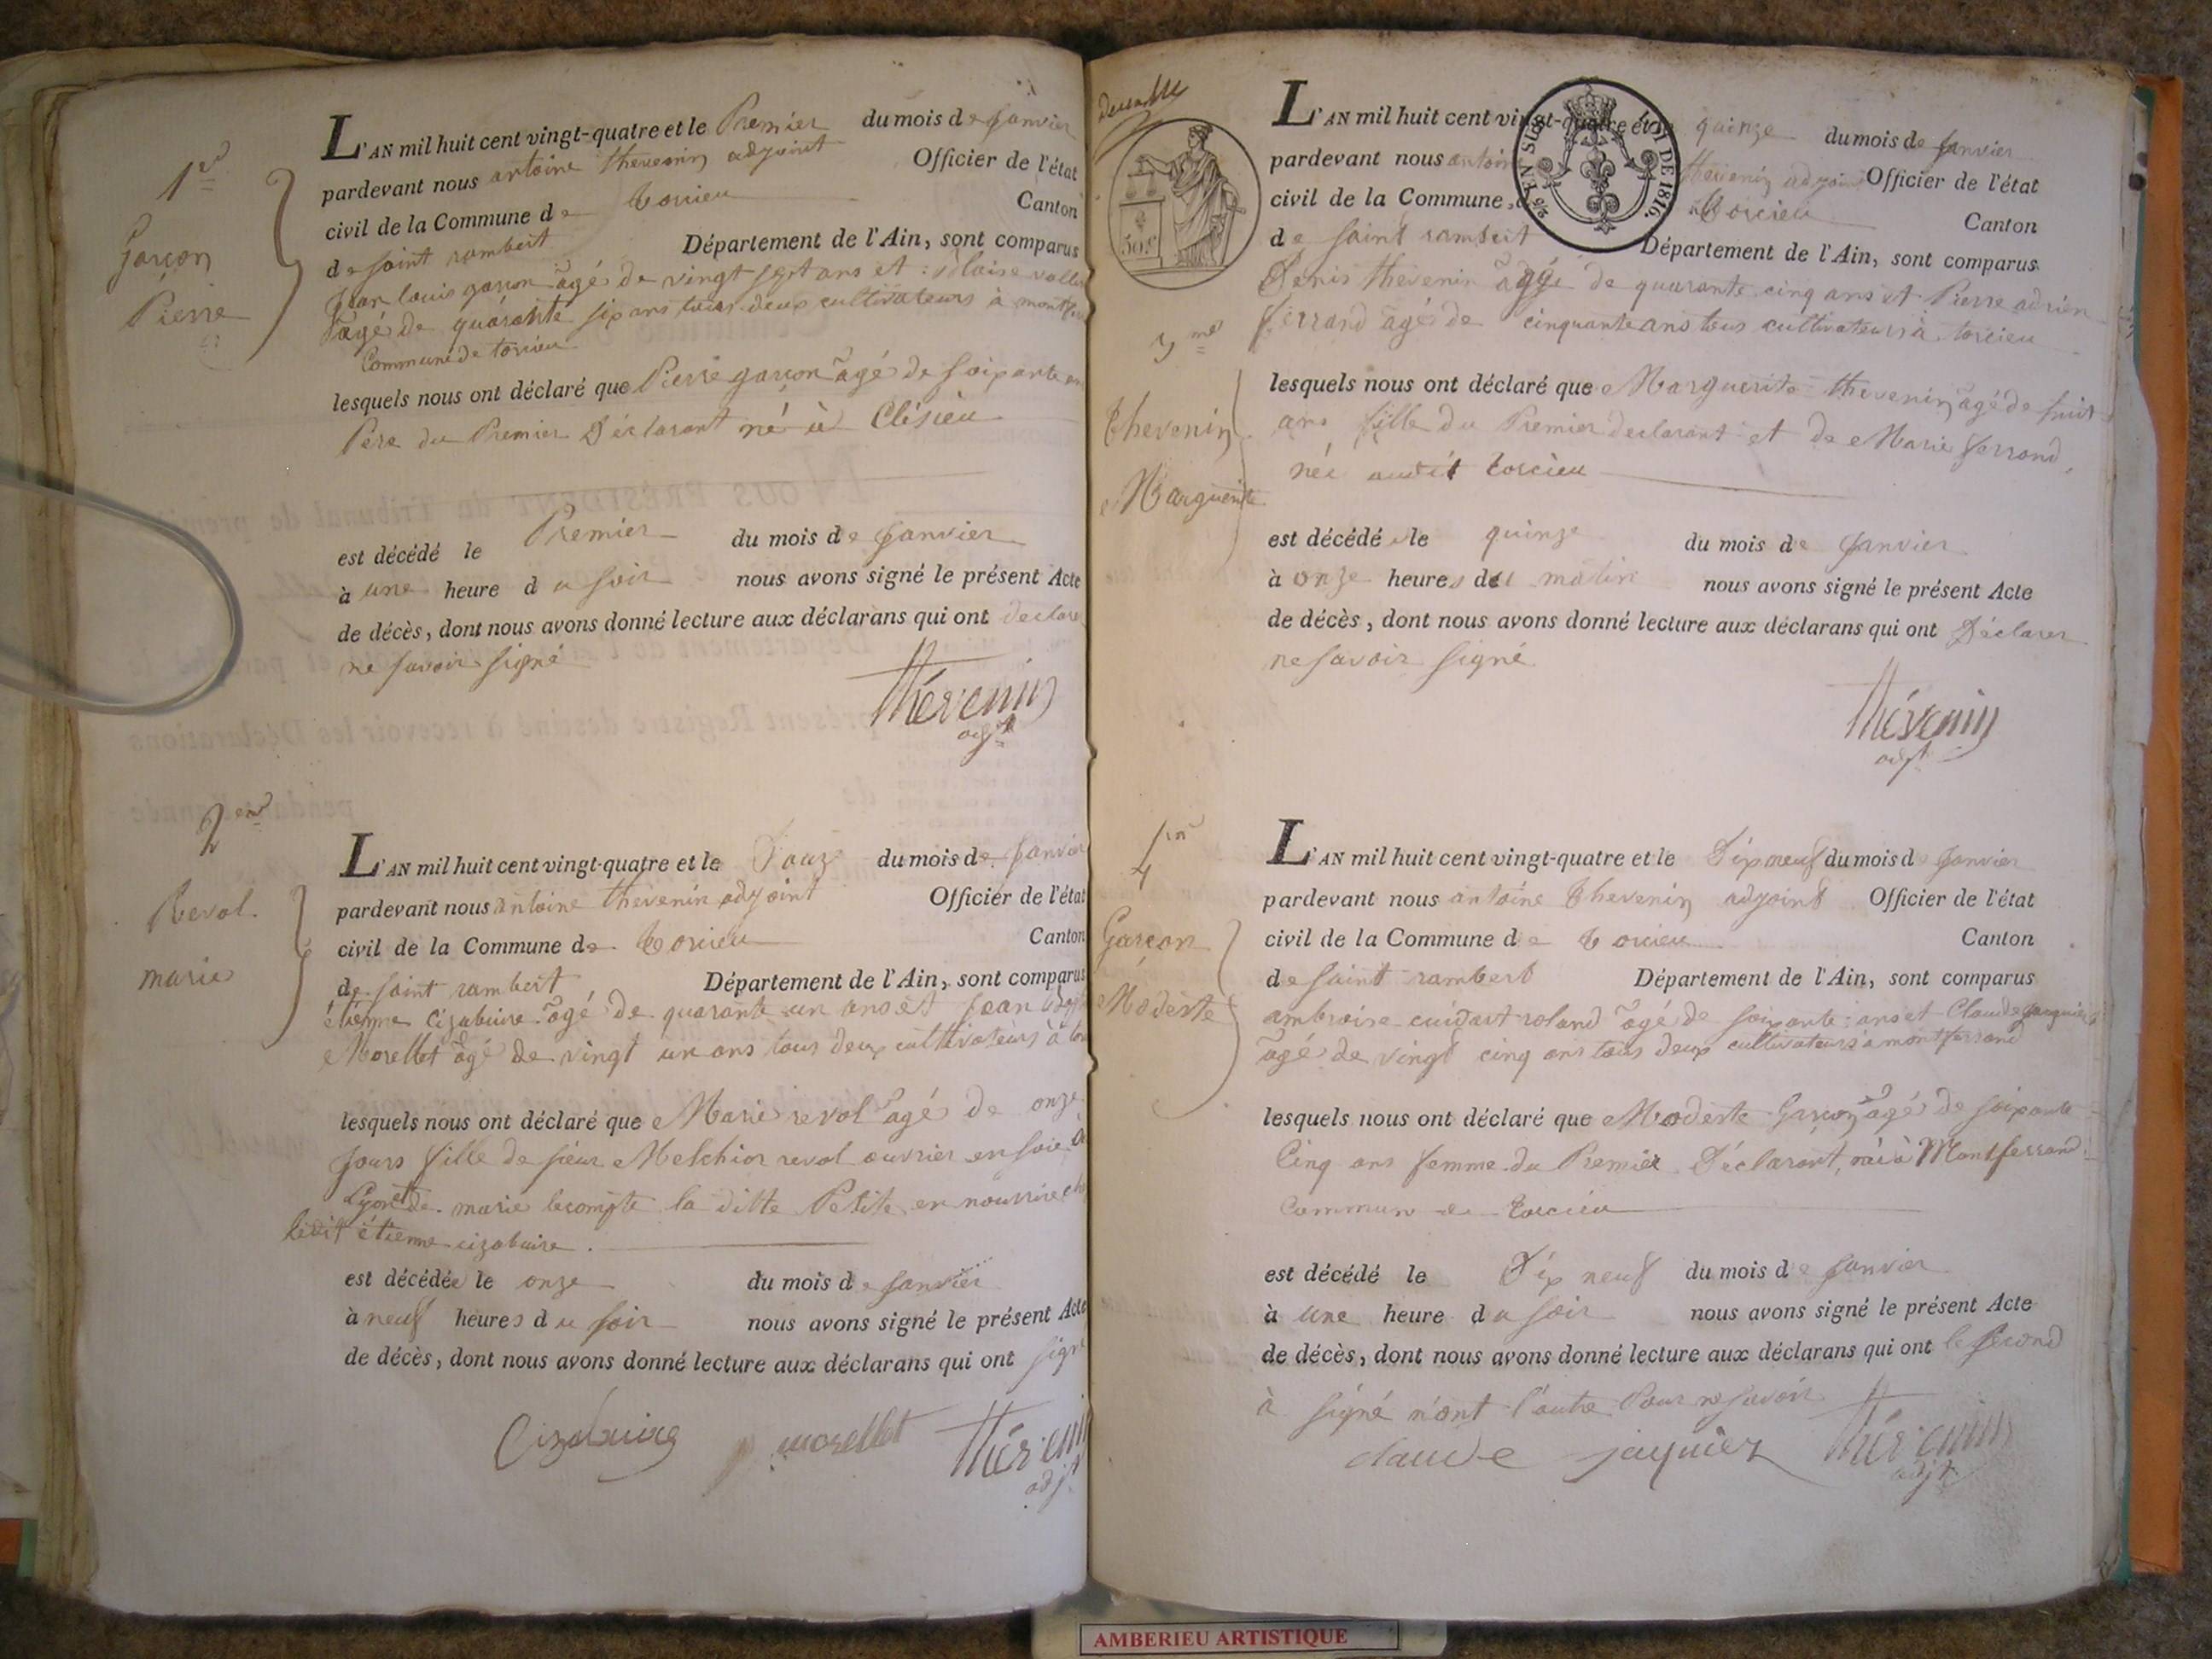 1er
Garçon
Pierre
L'AN mil huit cent vingt-quatre et le Premier du mois de janvier
pardevant nous antoine thevenin adjoint Officier de l'état
civil de la Commune de torcieu Canton
de saint rambert Département de l'Ain, sont comparus
Jean louis garçon agé de vingt sept ans et Blaise
agé de quarante six ans tous deux cultivateurs à
Commune de torcieu
lesquels nous ont déclaré que Pierre garçon agé de soixante
Pere du Premier Déclarant né à Clésieu
est décédé le Premier du mois de janvier
à une heure du soir nous avons signé le présent Acte
de décès, dont nous avons donné lecture aux déclarans qui ont declare
ne savoir signé
thévenin
adjt
2em
Revol
marie
L'AN mil huit cent vingt-quatre et le Douze du mois de janvier
pardevant nous antoine thevenin adjoint Officier de l'état
civil de la Commune de torcieu Canton
de saint rambert Département de l'Ain, sont comparus
étienne cizabuire agé de quarante un ans et jean
Morellet agé de vingt un ans tous deux cultivateurs à
lesquels nous ont déclaré que Marie revol agé de onze
jours fille de sieur Melchior revol ouvrier en soie
Lyon et de marie lecompte la ditte Petite en nourrice
ledit étienne cizabuire
est décédée le onze du mois de janvier
à neuf heures du soir nous avons signé le présent Acte
de décès, dont nous avons donné lecture aux déclarans qui ont signé
Cizabuire morellet thévenin
adjt
50 c
LOI DE 1816.
3me
thevenin
Marguerite
L'AN mil huit cent vingt-quatre et le quinze du mois de janvier
pardevant nous antoine thevenin adjoint Officier de l'état
civil de la Commune de torcieu Canton
de saint rambert Département de l'Ain, sont comparus
Denis thevenin agé de quarante cinq ans et Pierre adrien
ferrand agé de cinquante ans tous cultivateurs à torcieu
lesquels nous ont déclaré que Marguerite thevenin agé de huit
ans fille du Premier declarant et de Marie ferrand
née audit torcieu
est décédé le quinze du mois de janvier
à onze heures du matin nous avons signé le présent Acte
de décès, dont nous avons donné lecture aux déclarans qui ont Déclarer
ne savoir signé
thévenin
adjt
4
Garçon
Modeste
L'AN mil huit cent vingt-quatre et le Dix neuf du mois de janvier
pardevant nous antoine thevenin adjoint Officier de l'état
civil de la Commune de torcieu Canton
de saint rambert Département de l'Ain, sont comparus
ambroise cuidart roland agé de soixante ans et Claude
agé de vingt cinq ans tous deux cultivateurs à montferrand
lesquels nous ont déclaré que Modeste Garçon agé de soixante
Cinq ans femme du Premier Déclarant, née à Montferrand
Commune de torcieu
est décédé le Dix neuf du mois de janvier
à une heure du soir nous avons signé le présent Acte
de décès, dont nous avons donné lecture aux déclarans qui ont le second
à signé n'ont l'autre Pour ne savoir
claude jaquier thévenin
adjt
AMBERIEU ARTISTIQUE